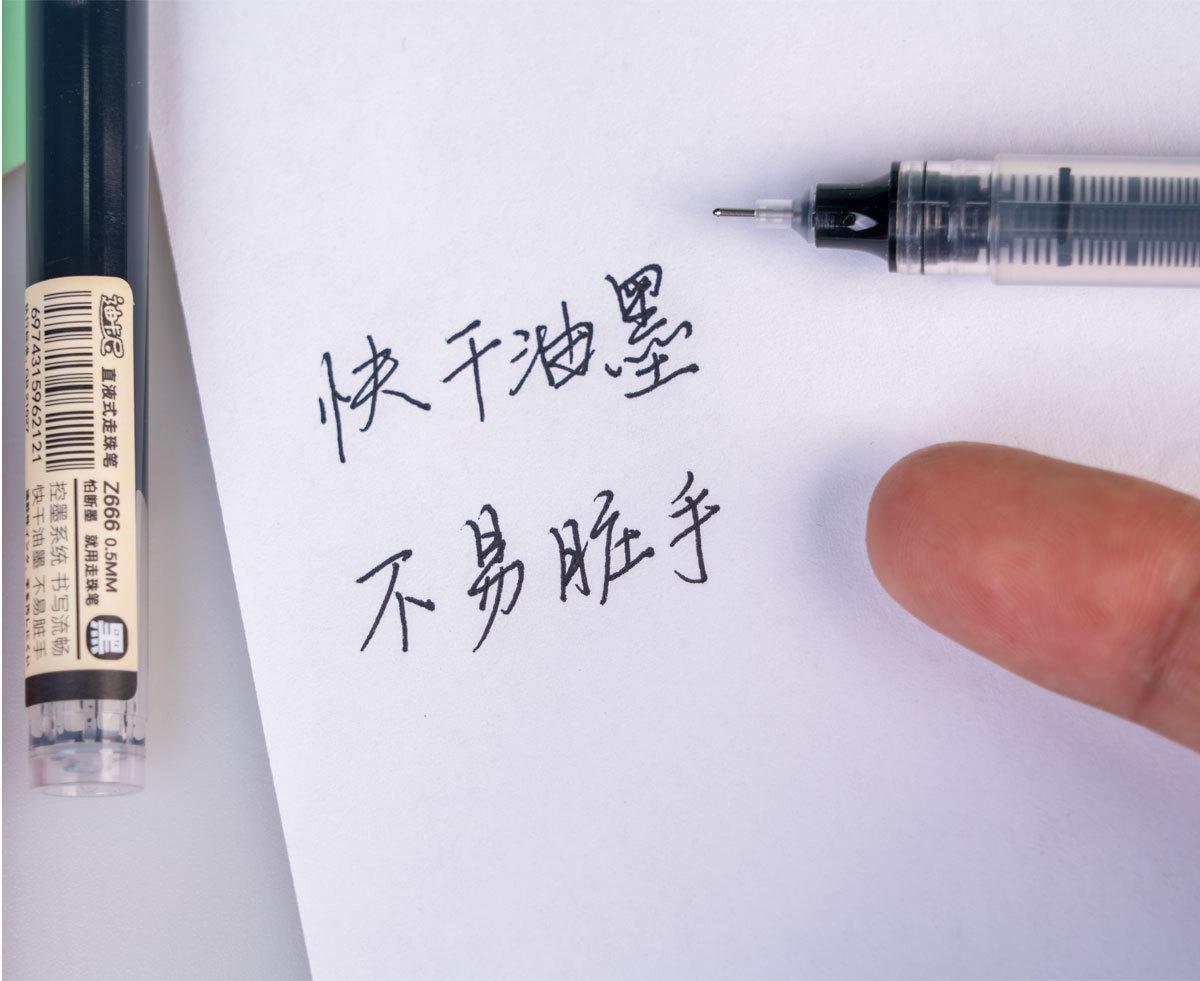 快干油墨
不易脏手
直液式走珠笔
Z666 0.5MM
怕断墨 就用走珠笔
控墨系统 书写流畅
快干油墨 不易脏手
黑
6974315962121